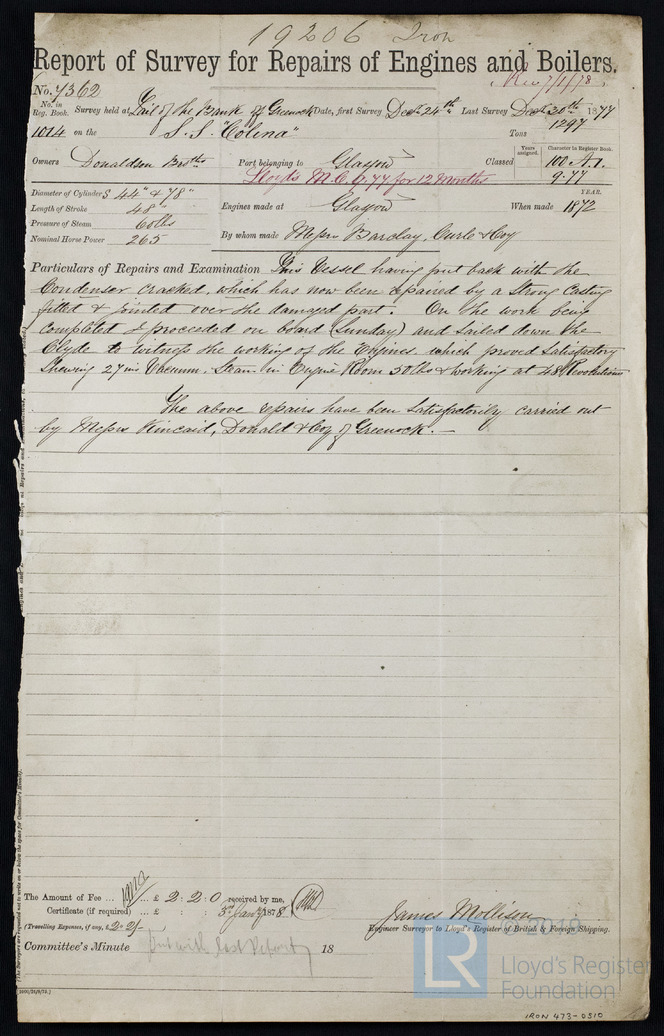 19206 Iron
Report of Survey for Repairs of Engines and Boilers.
No. 7362 Rec 7/1/78
No. in Reg. Book. Survey held at Tail of the Bank off Greenock Date, first Survey Decr 24th Last Survey Decr 30th 1877
1014 on the S.S. "Colina" Tons 1297
Owners Donaldson Broths Port belonging to Glasgow Classed Years assigned. Character in Register Book. 100 A.1.
Lloyd's M.C. 9.77 for 12 Months 9.77
Diameter of Cylinders 44" & 78" YEAR.
Length of Stroke 48" Engines made at Glasgow When made 1872
Pressure of Steam 60 lbs
Nominal Horse Power 265 By whom made Messrs Barclay, Curle & Coy
Particulars of Repairs and Examination This Vessel having put back with the
Condenser cracked, which has now been repaired by a Strong Casting
fitted & jointed over the damaged part. On the work being
completed I proceeded on board (Sunday) and Sailed down the
Clyde to witness the working of the Engines, which proved Satisfactory
Shewing 27 ins Vacuum, Steam in Engine Room 50 lbs & working at 48 Revolutions
The above repairs have been Satisfactorily carried out
by Messrs Kincaid, Donald & Coy of Greenock. —
The Amount of Fee ... £ 2 : 2 : 0 received by me,
Certificate (if required) ... £ : : 3rd Jany 1878
(Travelling Expenses, if any, £ 2.2/- )
James Mollison
Engineer Surveyor to Lloyd's Register of British & Foreign Shipping.
Committee's Minute Put with last Report 18
LR
2019
Lloyd's Register
Foundation
IRON 473-0310